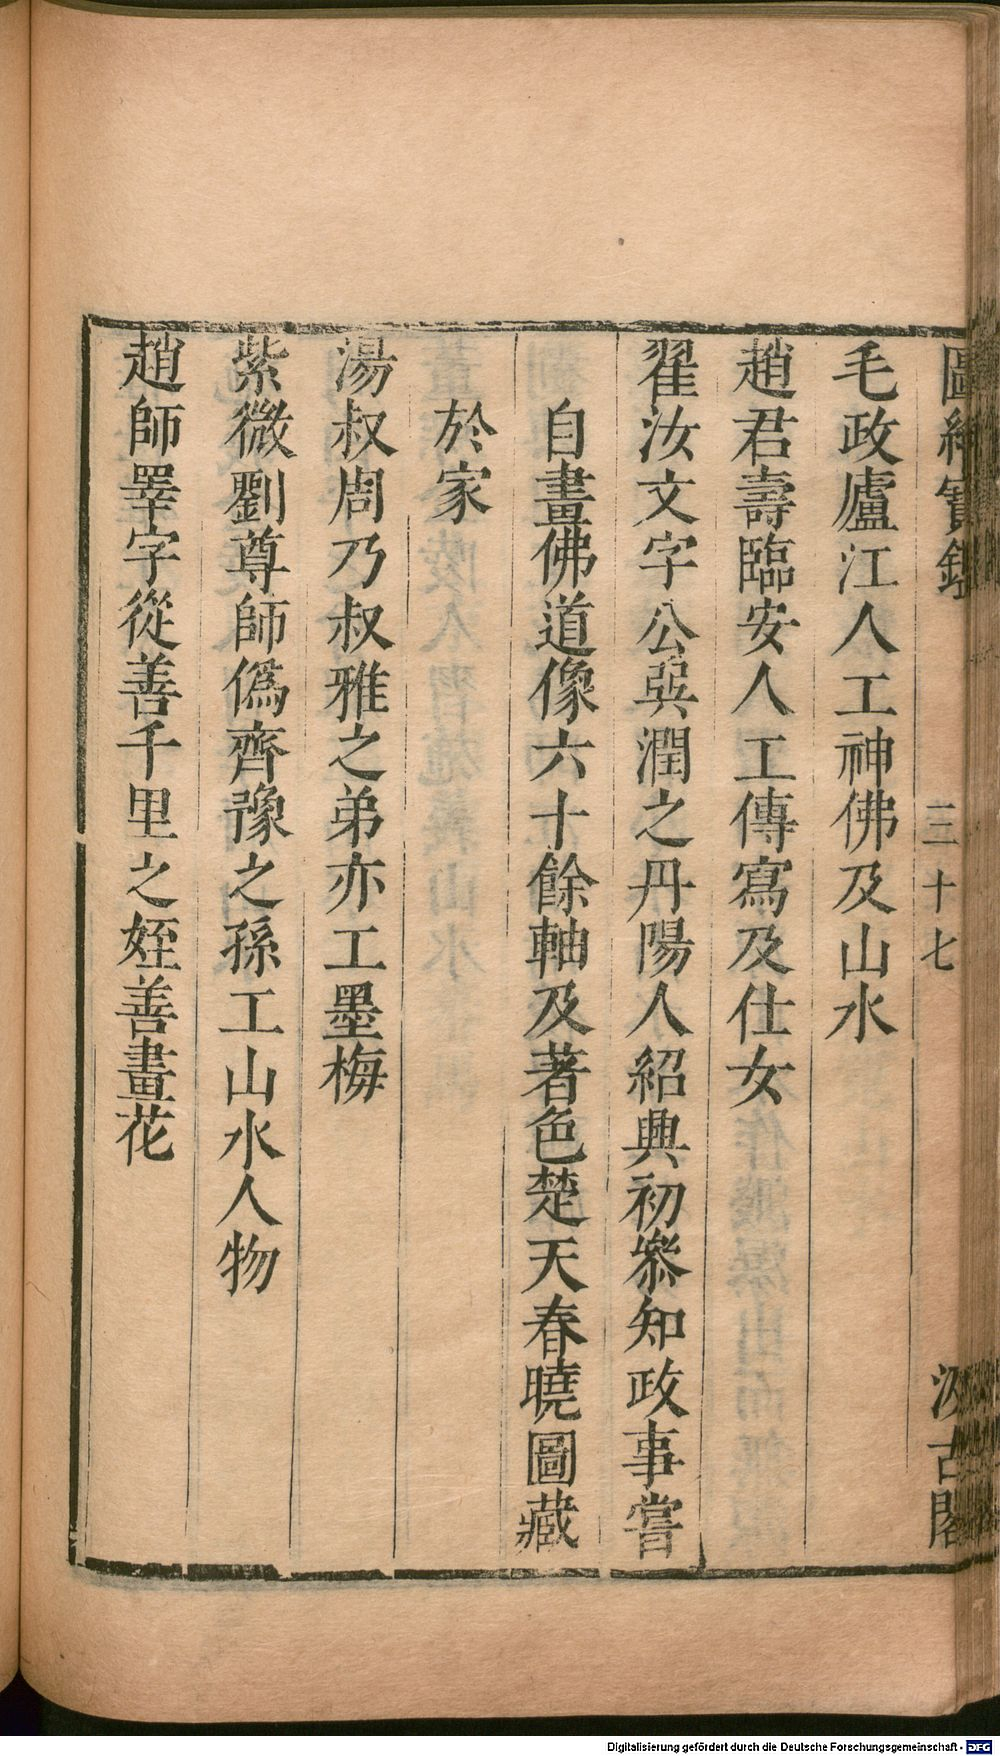 圖繪寶鑑 三十七 汲古閣
毛政廬江人工神佛及山水
趙君壽臨安人工傳寫及仕女
翟汝文字公巽潤之丹陽人紹興初叅知政事嘗
自畫佛道像六十餘軸及著色楚天春曉圖藏
於家
湯叔周乃叔雅之弟亦工墨梅
紫微劉尊師僞齊豫之孫工山水人物
趙師睪字從善千里之姪善畫花
Digitalisierung gefördert durch die Deutsche Forschungsgemeinschaft - DFG